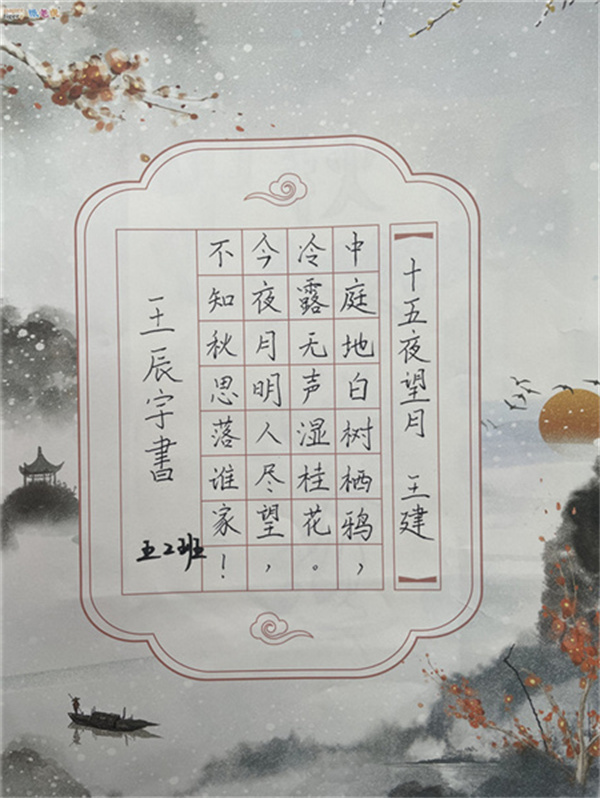 十五夜望月 王建
中庭地白树栖鸦，
冷露无声湿桂花。
今夜月明人尽望，
不知秋思落谁家！
王辰宇書
五2班